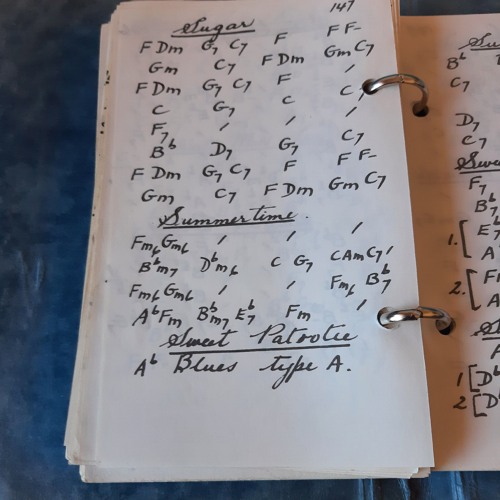 147
Sugar
F Dm G7 C7 F F F-
Gm C7 F Dm Gm C7
F Dm G7 C7 F /
C G7 C C7
F7 / / /
Bb D7 G7 C7
F Dm G7 C7 F F F-
Gm C7 F Dm Gm C7
Summertime.
Fm6 Gm6 / / /
Bbm7 Dbm6 C G7 C Am C7 /
Fm6 Gm6 / / Fm6 Bb7
Ab Fm Bbm7 Eb7 Fm /
Sweet Patootie
Ab Blues type A.
Bb
C7
D7
C7
F7
Bb7
1. [ Eb7
A
2. [
1 [ Db
2 [ Db